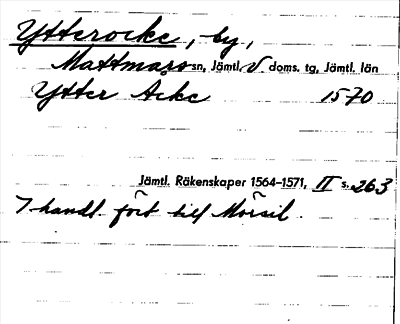 Ytterocke, by,
Mattmars sn, Jämtl. V doms. tg, Jämtl. län
Ytter Acke 1570
Jämtl. Räkenskaper 1564–1571, II s. 263
I handl. fört till Mörsil.